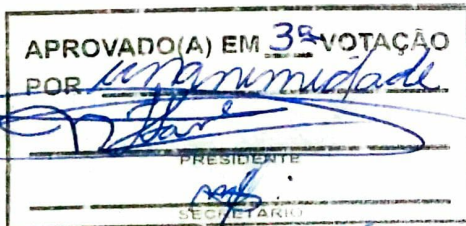 APROVADO(A) EM 3ª VOTAÇÃO
POR unanimidade
PRESIDENTE
SECRETÁRIO